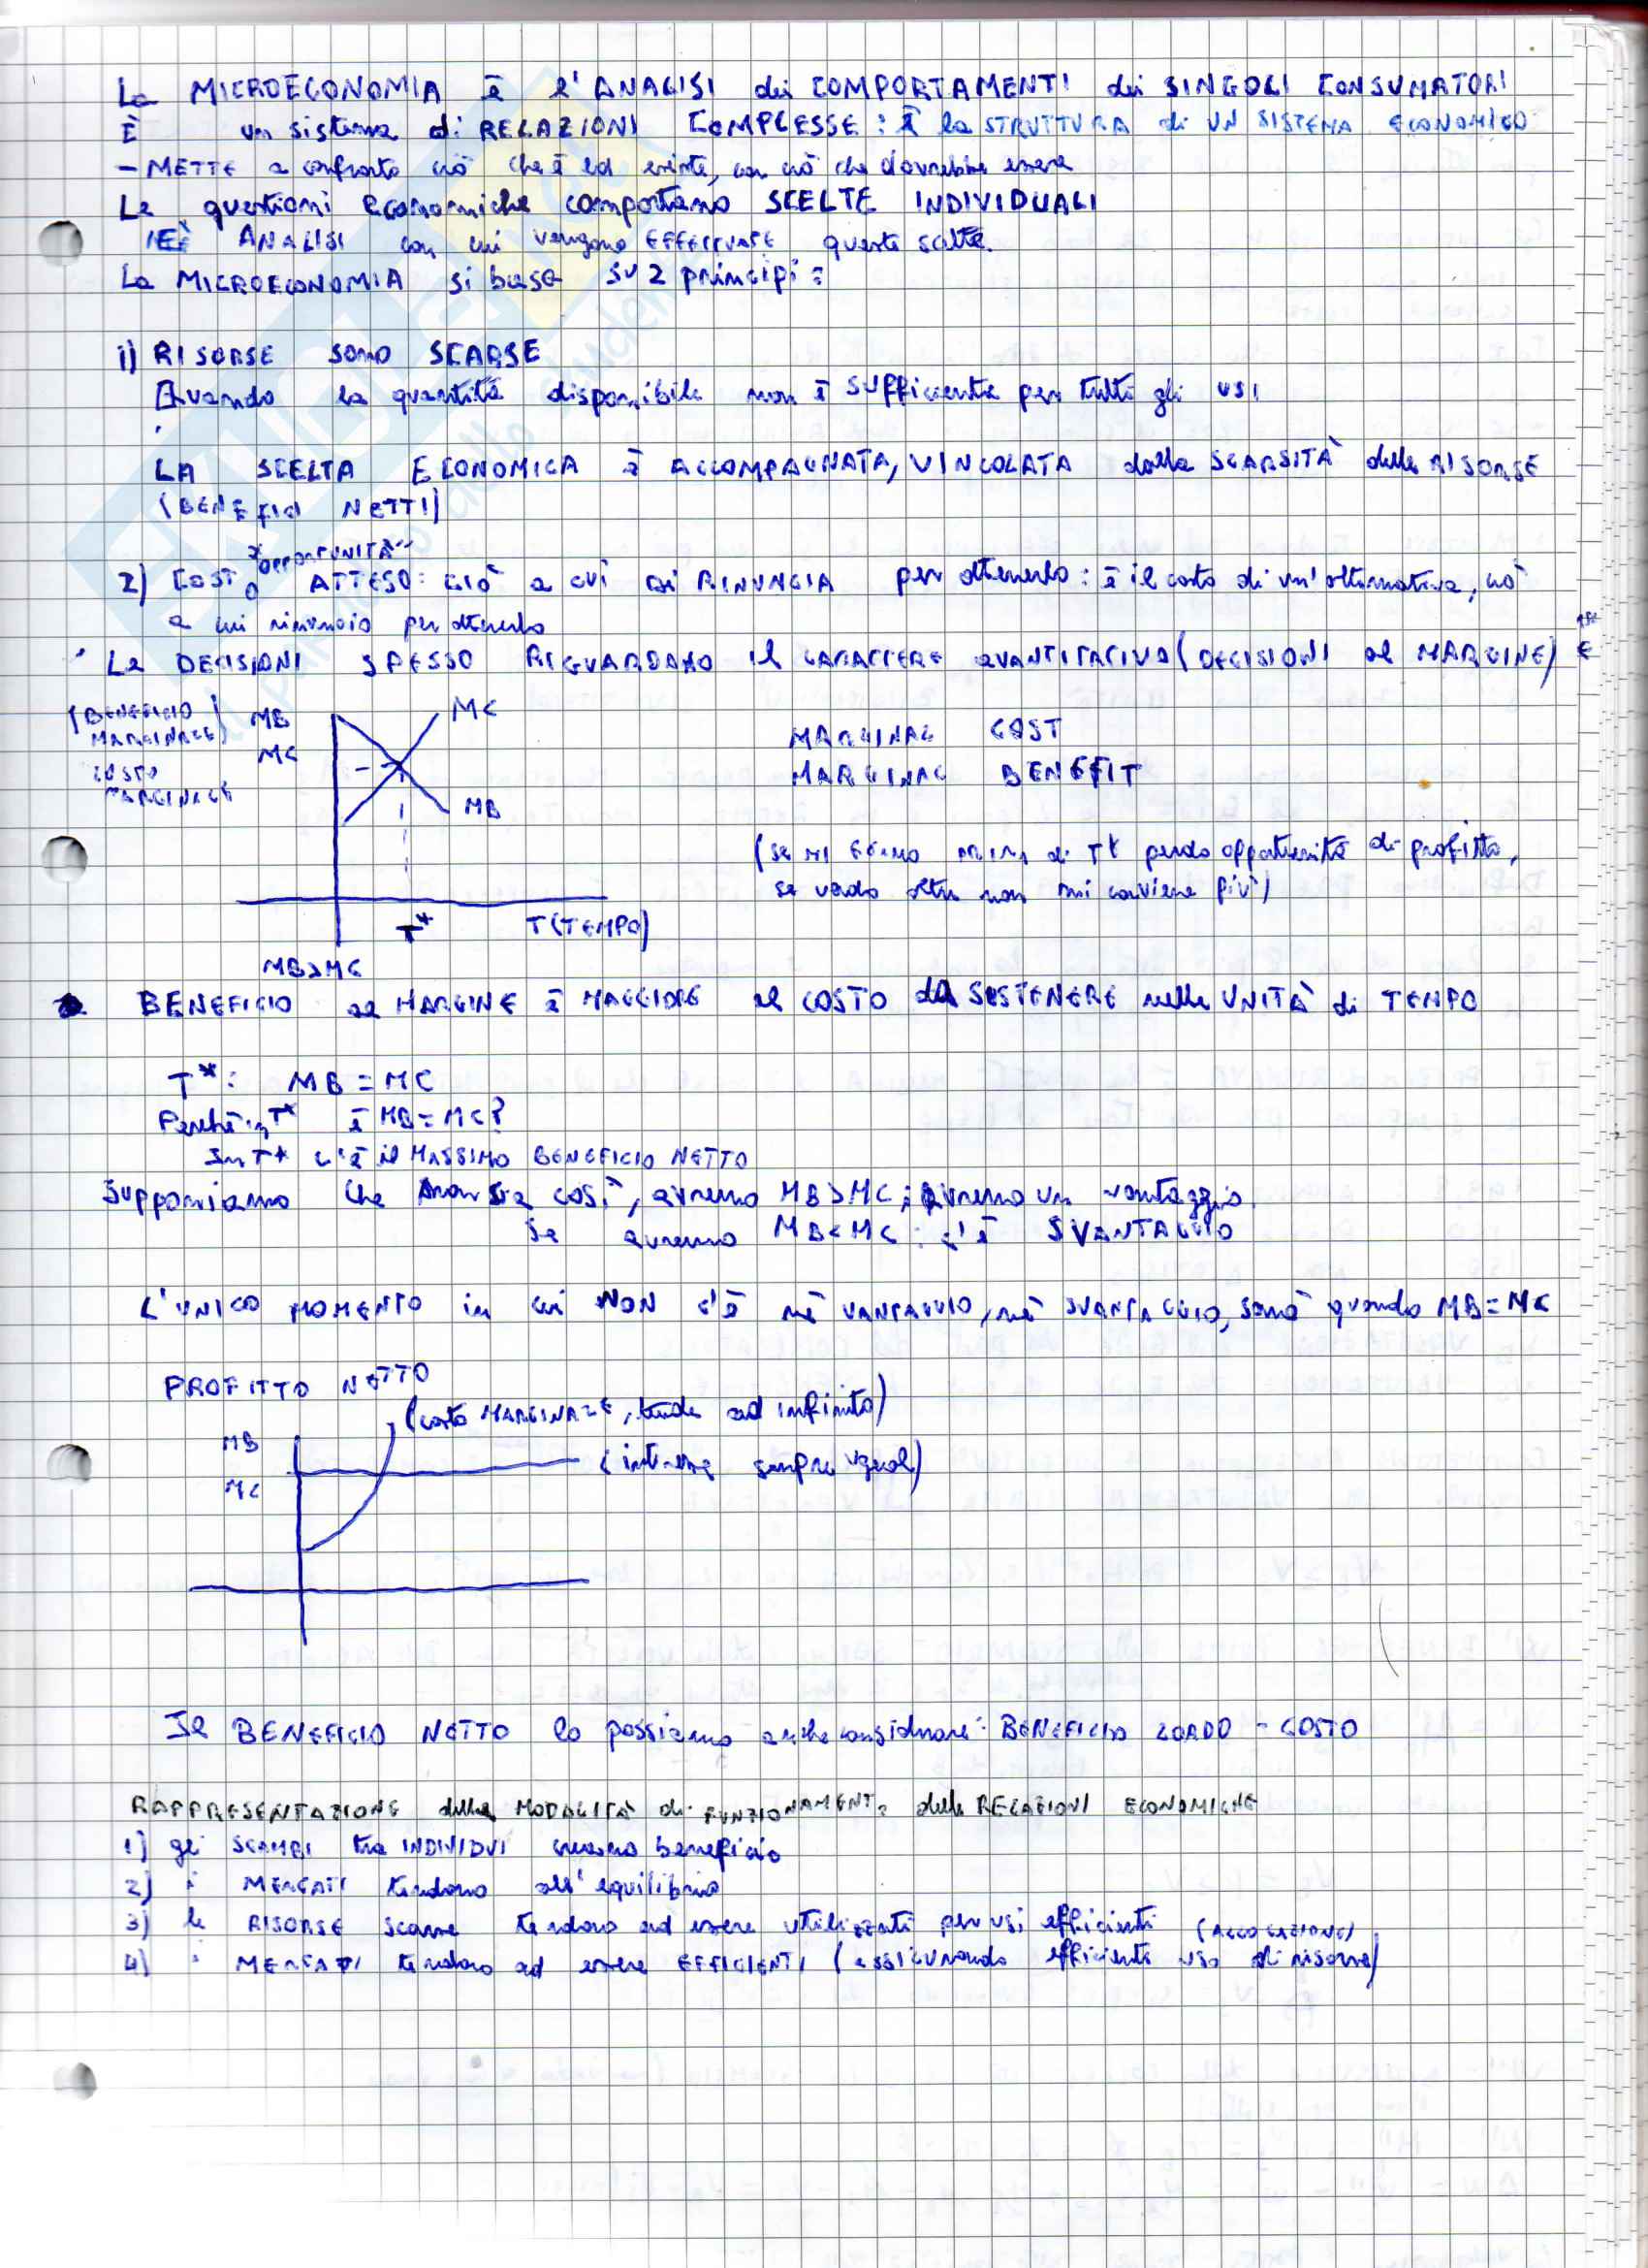 La MICROECONOMIA è l'ANALISI dei COMPORTAMENTI dei SINGOLI CONSUMATORI
È un sistema di RELAZIONI COMPLESSE: è la STRUTTURA di UN SISTEMA ECONOMICO
- METTE a confronto ciò che è ed esiste, con ciò che dovrebbe essere
Le questioni economiche comportano SCELTE INDIVIDUALI
ANALISI con cui vengono EFFETTUATE queste scelte.
La MICROECONOMIA si basa su 2 principi:
1) RISORSE sono SCARSE
Quando la quantità disponibile non è sufficiente per tutti gli usi
LA SCELTA ECONOMICA è ACCOMPAGNATA, VINCOLATA dalla SCARSITÀ delle RISORSE
(BENEFICI NETTI)
"opportUNITÀ"
2) COSTO ATTESO: ciò a cui si RINUNCIA per ottenerlo: è il costo di un'alternativa, ciò
a cui rinuncio per ottenerlo
Le DECISIONI SPESSO RIGUARDANO il CARATTERE QUANTITATIVO (DECISIONI al MARGINE) E
(BENEFICIO MARGINALE) MB MC
COSTO MARGINALE MC
MB
MARGINAL COST
MARGINAL BENEFIT
(se mi fermo prima di T* perdo opportunità di profitto,
se vado oltre non mi conviene più)
T* T(TEMPO)
MB>MC
BENEFICIO al MARGINE è MAGGIORE al COSTO da SOSTENERE nelle UNITÀ di TEMPO
T*: MB = MC
Perché in T* è MB = MC?
In T* c'è il MASSIMO BENEFICIO NETTO
Supponiamo che non sia così, avremo MB>MC; avremo un vantaggio.
Se avremo MB<MC: c'è SVANTAGGIO
L'UNICO MOMENTO in cui NON c'è né VANTAGGIO, né SVANTAGGIO, sarà quando MB=MC
PROFITTO NETTO
(costo MARGINALE, tende ad infinito)
MB
(interesse sempre uguale)
MC
Il BENEFICIO NETTO lo possiamo anche considerare: BENEFICIO LORDO - COSTO
RAPPRESENTAZIONE delle MODALITÀ di FUNZIONAMENTO delle RELAZIONI ECONOMICHE
1) gli SCAMBI tra INDIVIDUI creano beneficio
2) i MERCATI tendono all'equilibrio
3) le RISORSE scarse tendono ad essere utilizzate per usi efficienti (ALLOCAZIONE)
4) i MERCATI tendono ad essere EFFICIENTI (assicurando efficiente uso di risorse)